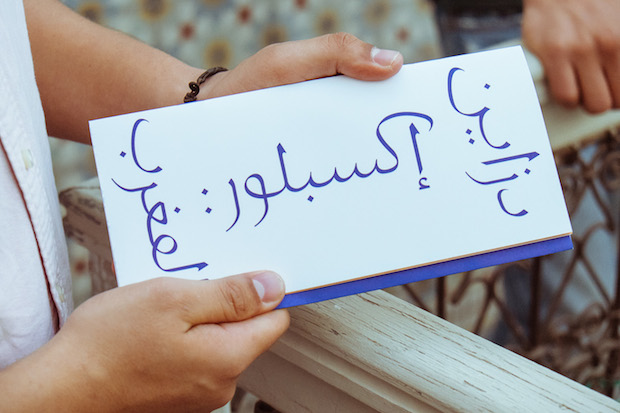 ديزاين
إكسبلور:
المغرب